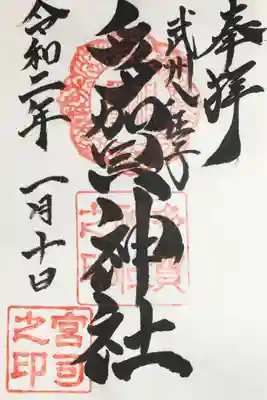 奉拝
武州八王子
多賀神社
令和二年 一月十日
宮司之印